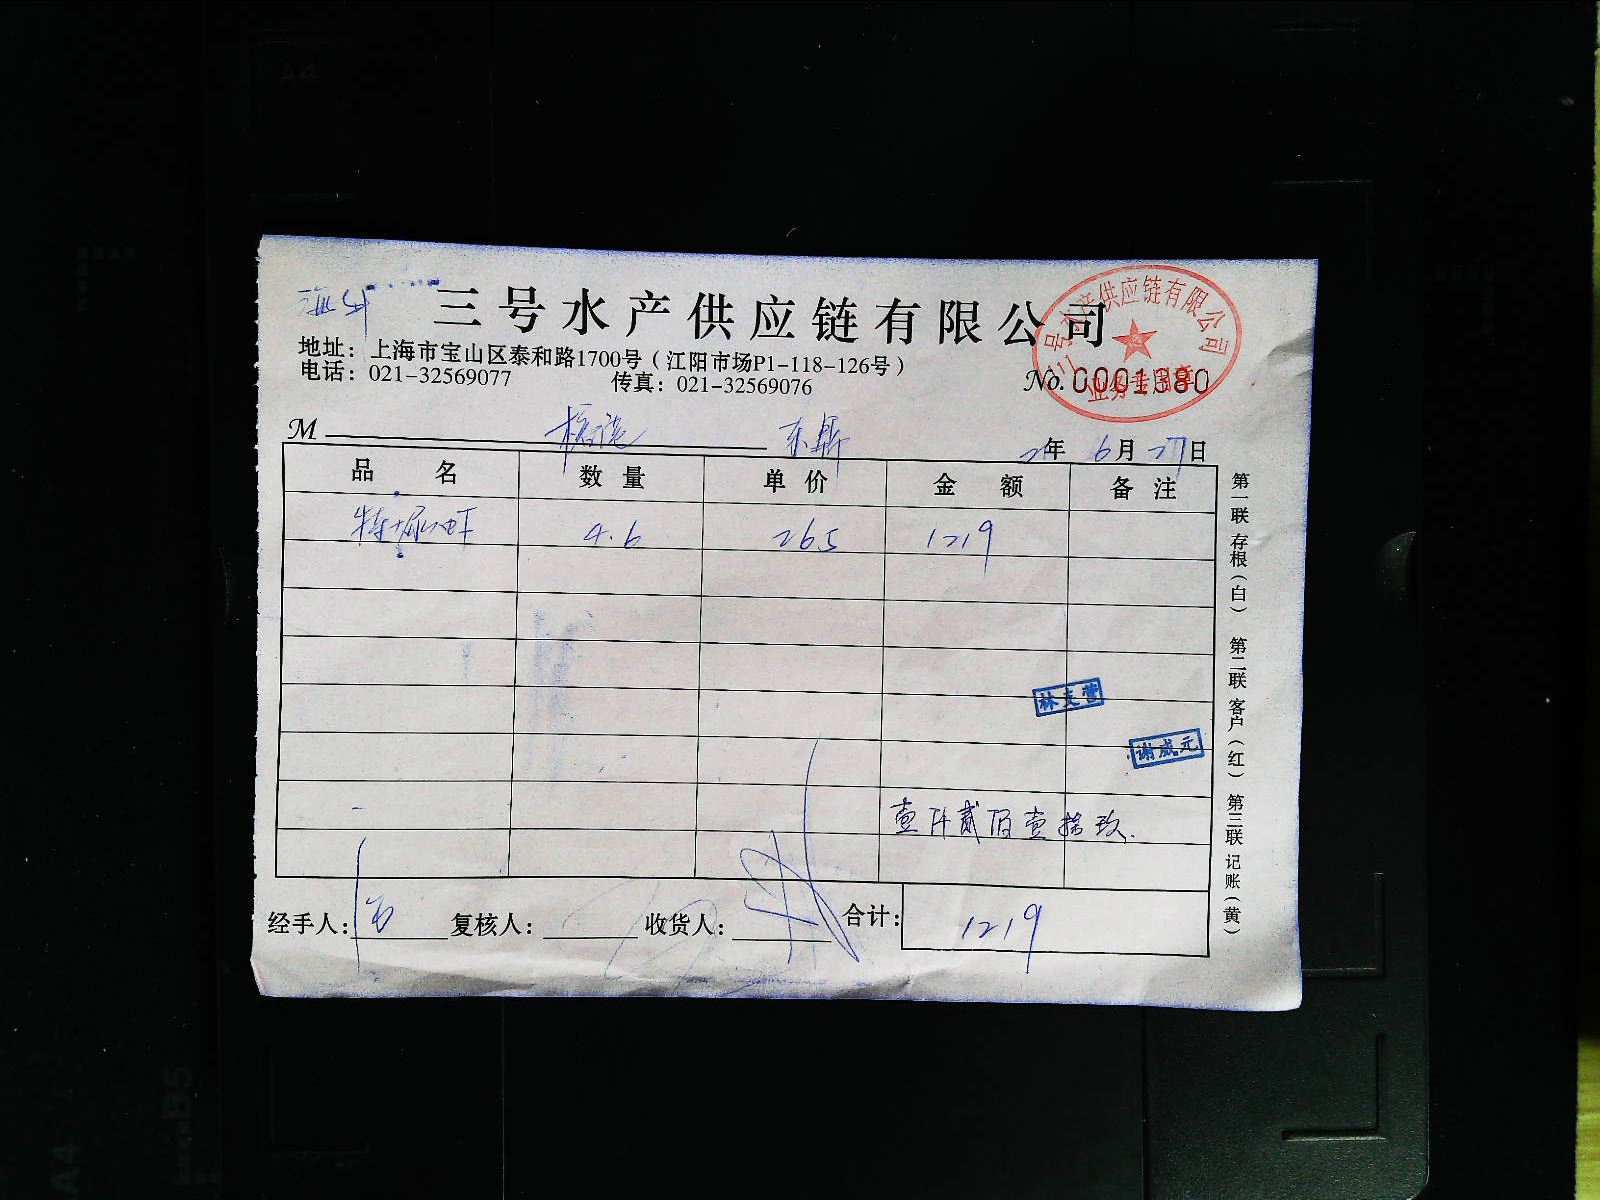 三号水产供应链有限公司
地址：上海市宝山区泰和路1700号（江阳市场P1-118-126号）
电话：021-32569077 传真：021-32569076
号水产供应链有限公司
业务专用章
No. 0001380
M 东鼎 2年6月27日
品名 数量 单价 金额 备注
特 尿虾 4.6 265 1219
林支营
谢成元
壹仟贰佰壹拾玖
经手人： 复核人： 收货人： 合计： 1219
第一联 存根（白） 第二联 客户（红） 第三联 记账（黄）
A4
B5
A4